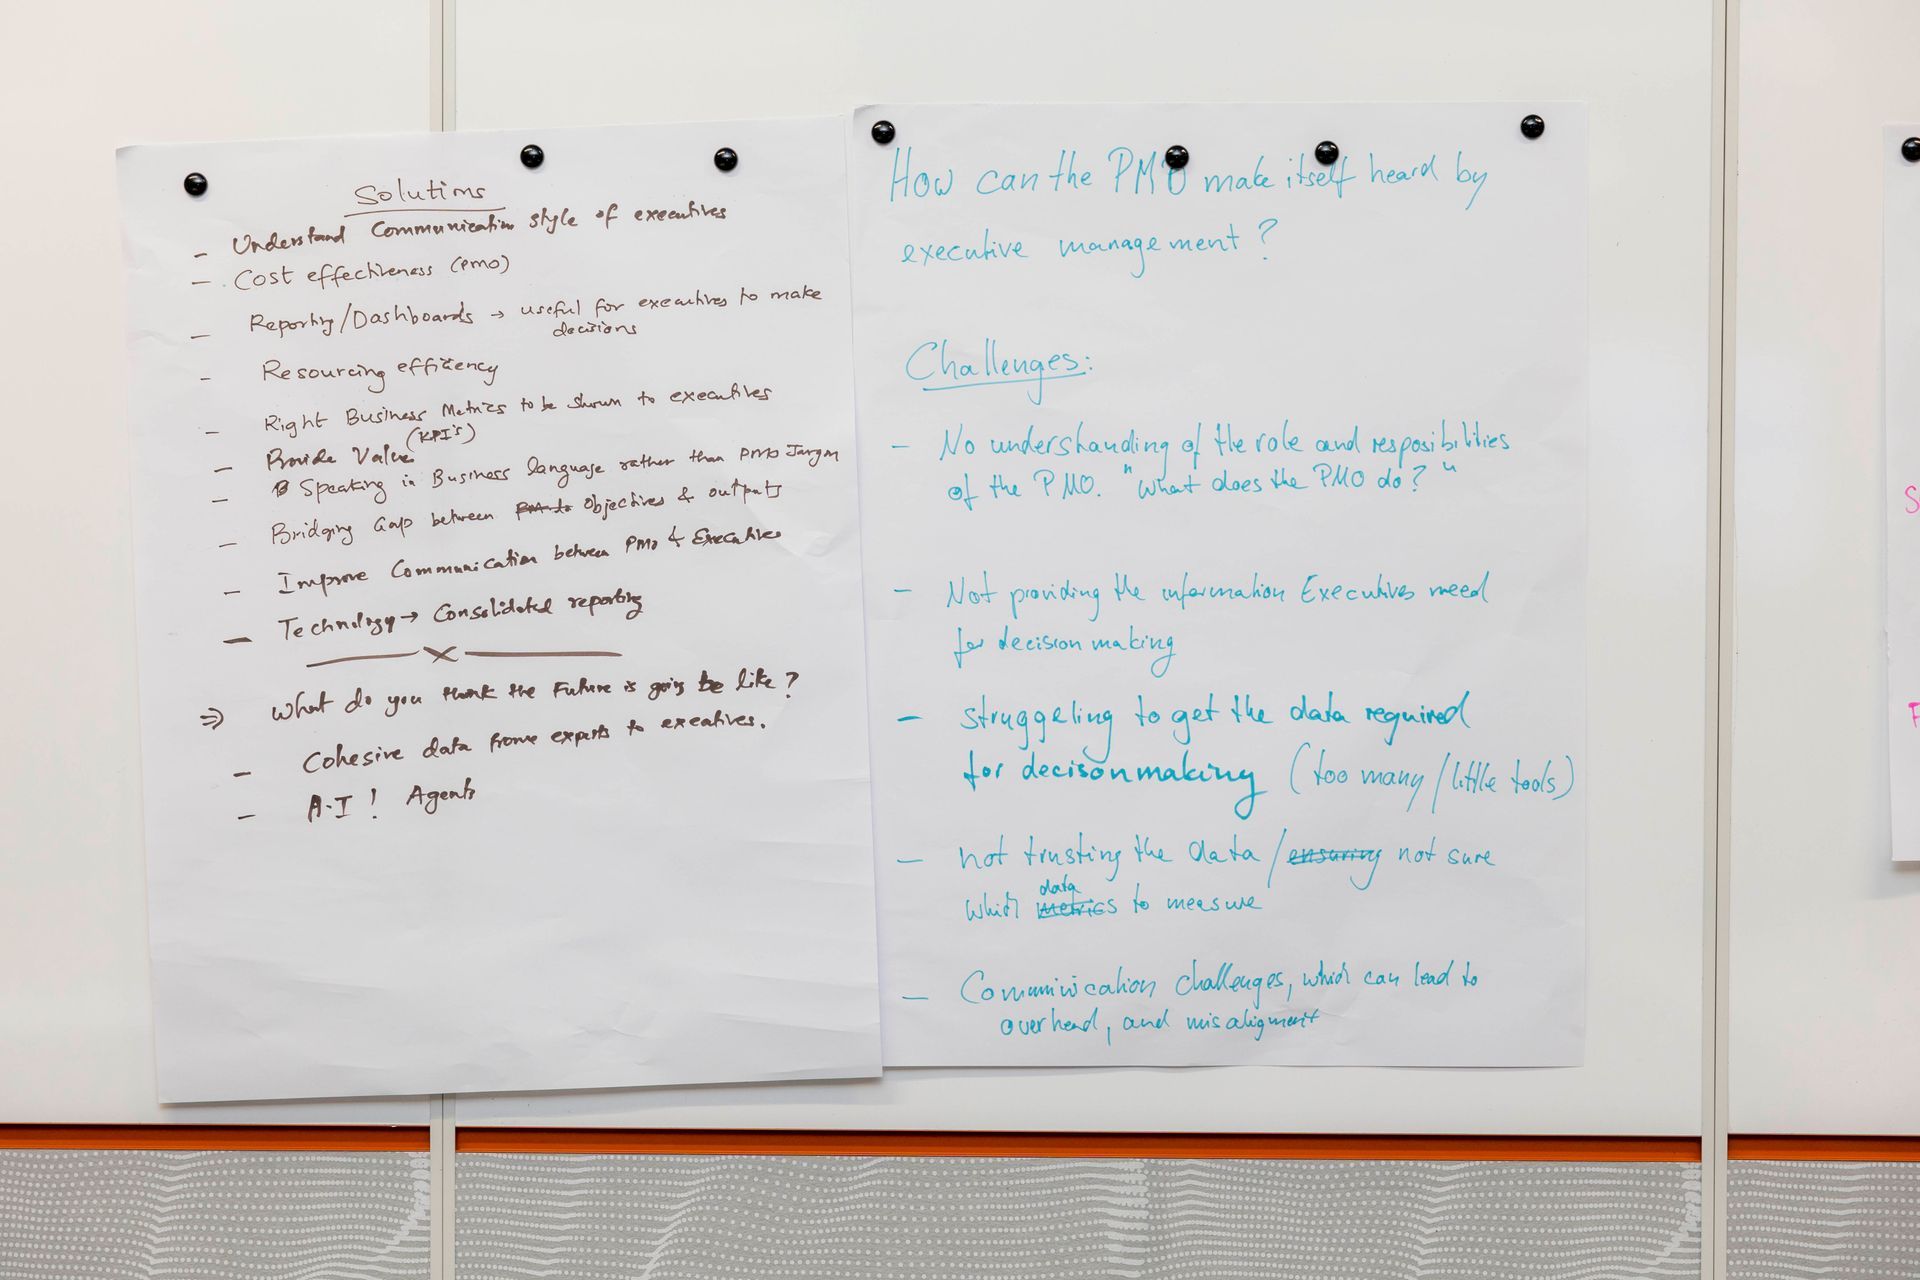 Solutions
- Understand Communication style of executives
- Cost effectiveness (PMO)
- Reporting/Dashboards → useful for executives to make
decisions
- Resourcing efficiency
- Right Business Metrics to be shown to executives
(KPI's)
- Provide Value
- Speaking in Business language rather than PMO Jargon
- Bridging Gap between PM to Objectives & outputs
- Improve Communication between PMO & Executives
- Technology → Consolidated reporting
X
⇒ What do you think the Future is going be like?
- Cohesive data from experts to executives.
- A.I ! Agents
How can the PMO make itself heard by
executive management?
Challenges:
- No understanding of the role and resposibilities
of the PMO. "What does the PMO do?"
- Not providing the information Executives need
for decision making
- struggeling to get the data required
for decisonmaking (too many/little tools)
- not trusting the data / ensuring not sure
data
which metrics to measure
- Communication challenges, which can lead to
overhead, and misaligment
S
F